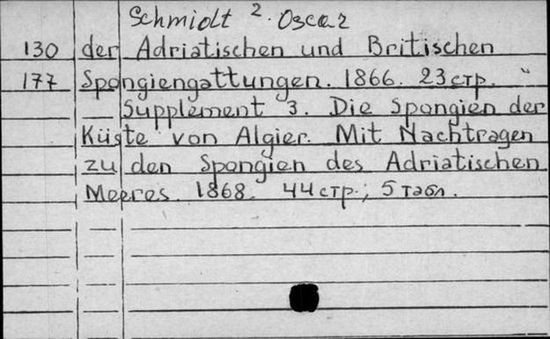 Schmidt 2. Oscar
130 der Adriatischen und Britischen
177 Spongiengattungen. 1866. 23 стр. "
Supplement 3. Die Spongien der
Küste von Algier. Mit Nachtragen
zu den Spongien des Adriatischen
Meeres. 1868. 44 стр.; 5 табл.